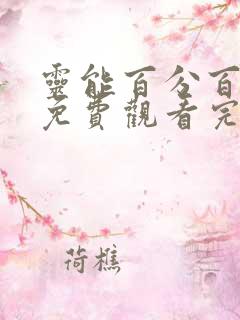 靈能百分百
免費觀看完
荷樵